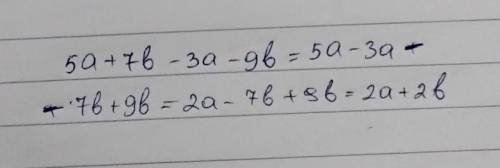 5a + 7b - 3a - 9b = 5a - 3a -
- 7b + 9b = 2a - 7b + 9b = 2a + 2b